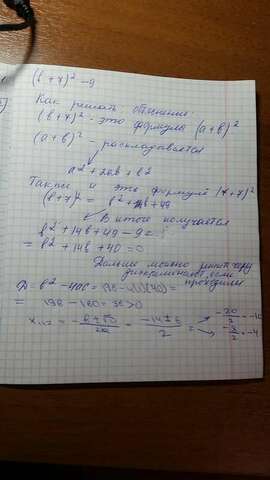 (b+7)² - 9
Как решать объяснение:
(b+7)² - это формула (a+b)²
(a+b)² - раскладывается
a² + 2ab + b²
Также и это формула (b+7)²
(b+7)² = b² + 14b + 49
В итоге получается
b² + 14b + 49 - 9 =
= b² + 14b + 40 = 0
Дальше можно решить через
дискриминант если
проходили
D = b² - 4ac = 196 - 4(1)(40) =
= 196 - 160 = 36 > 0
x₁,₂ = = -14±6 / 2 = -20/2 = -10
-8/2 = -4